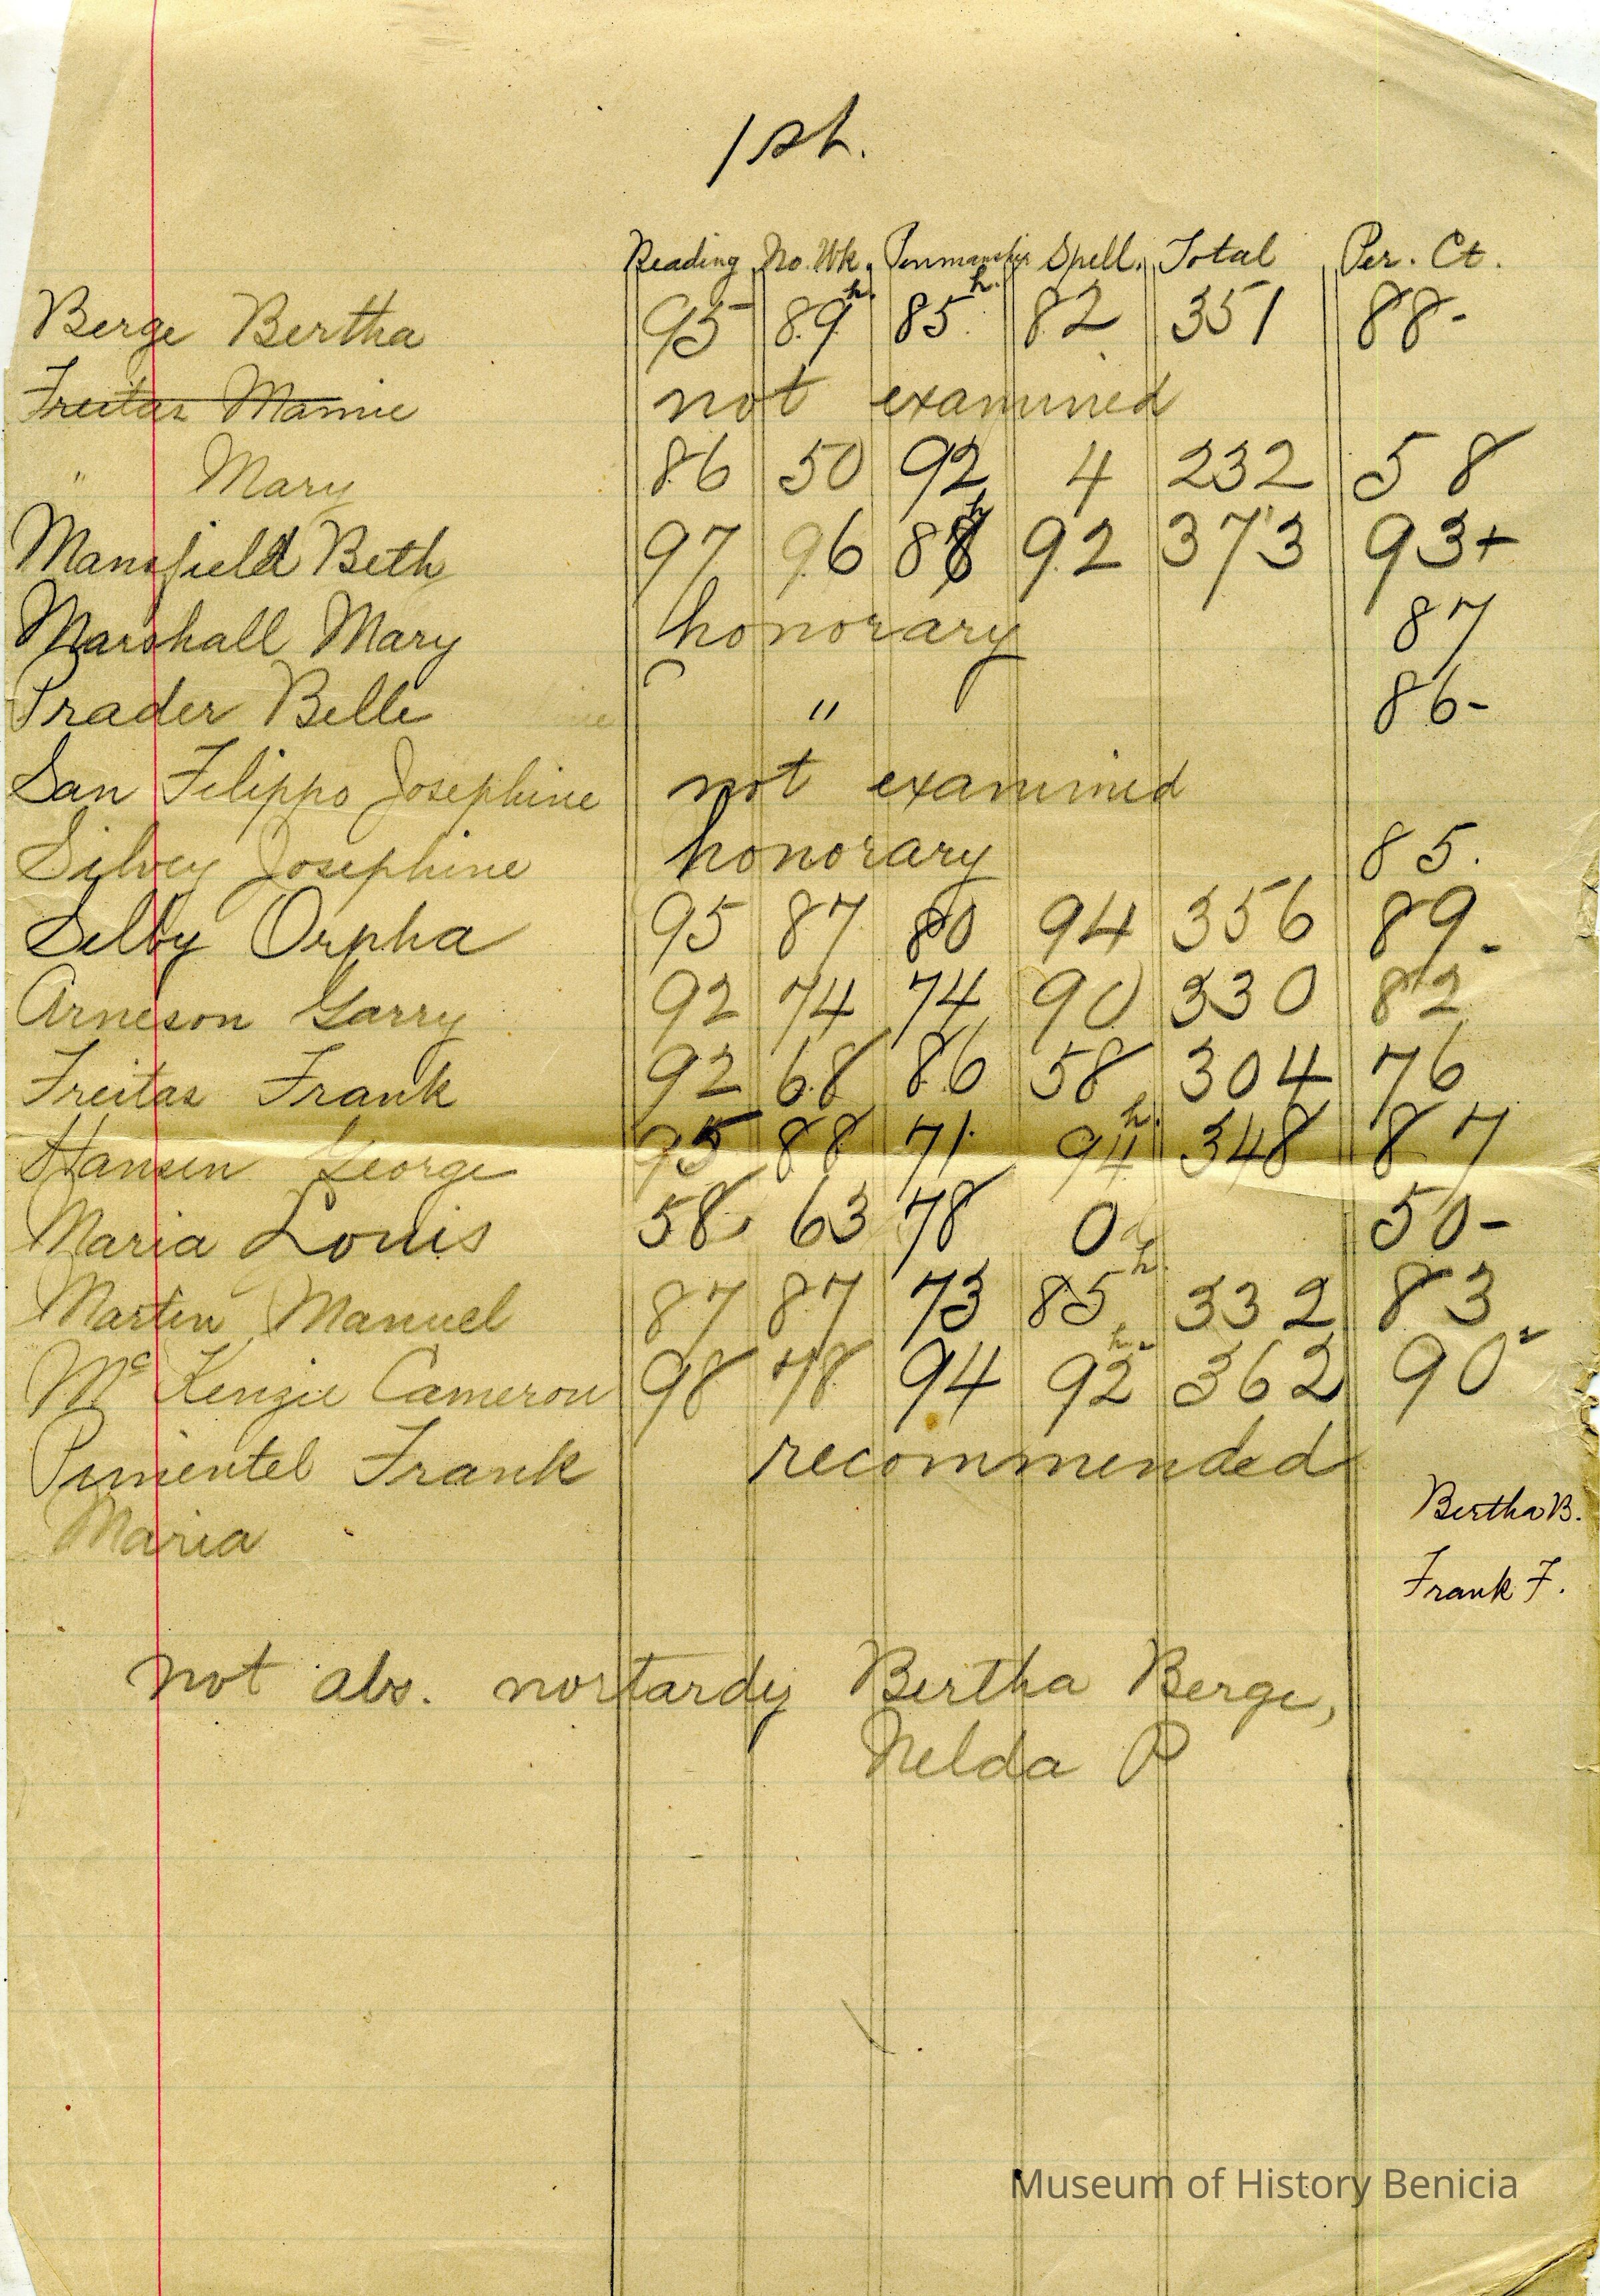 1st.
Reading No. Wk. Penmanship Spell. Total Per. Ct.
Berge Bertha 95 89 h. 85 h. 82 351 88-
Freitas Mamie not examined
" Mary 86 50 92 4 232 58
Mansfield Beth 97 96 88 h 92 373 93+
Marshall Mary honorary 87
Prader Belle " 86-
San Filippo Josephine not examined
Silvey Josephine honorary 85.
Selby Orpha 95 87 80 94 356 89-
Arneson Garry 92 74 74 90 330 82
Freitas Frank 92 68 86 58 304 76
Hansen George 95 88 71 94 h. 348 87
Maria Louis 58 63 78 0 50-
Martin Manuel 87 87 73 85 h. 332 83
McKenzie Cameron 98 78 94 92 h. 362 90
Pimentel Frank recommended
Maria
Bertha B.
Frank F.
not abs. nor tardy Bertha Berge,
Nelda P
Museum of History Benicia